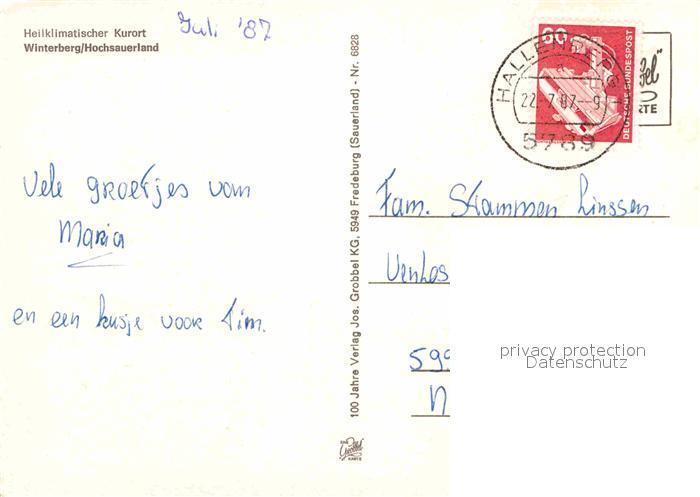 Heilklimatischer Kurort
Winterberg/Hochsauerland
Juli '87
Vele groetjes van
Maria
en een kusje voor Tim.
100 Jahre Verlag Jos. Grobbel KG, 5949 Fredeburg (Sauerland) - Nr. 6828
Grobbel
KARTE
60
DEUTSCHE BUNDESPOST
HALLENBERG
22.-7.87.-9
5789
RTE
Fam. Stammen Linssen
Venlos
599
N
privacy protection
Datenschutz